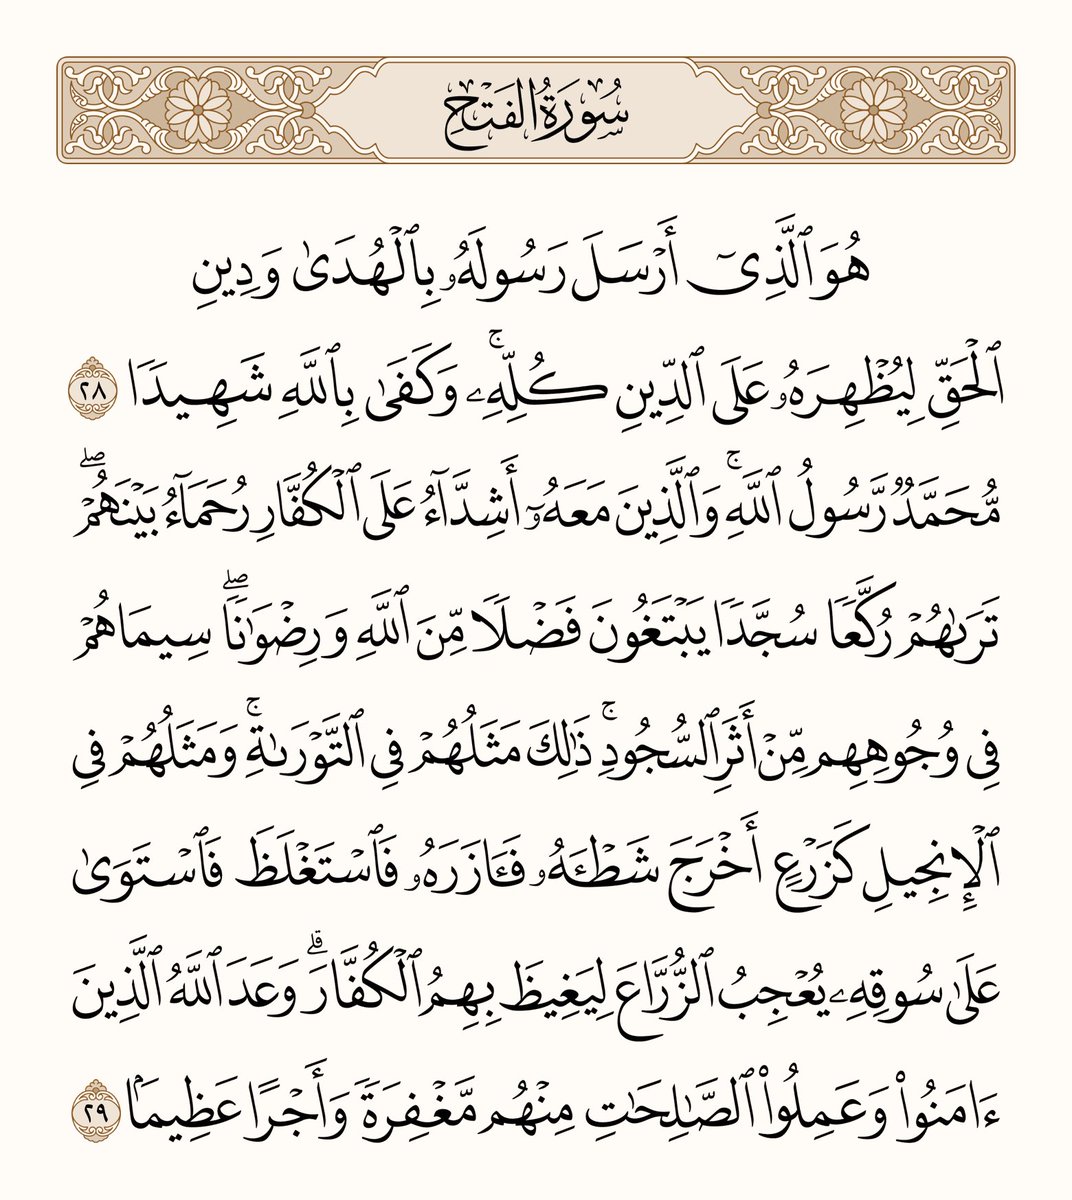 سُورَةُ الفَتۡحِ
هُوَ ٱلَّذِيٓ أَرۡسَلَ رَسُولَهُۥ بِٱلۡهُدَىٰ وَدِينِ
ٱلۡحَقِّ لِيُظۡهِرَهُۥ عَلَى ٱلدِّينِ كُلِّهِۦۚ وَكَفَىٰ بِٱللَّهِ شَهِيدٗا ٢٨
مُّحَمَّدٞ رَّسُولُ ٱللَّهِۚ وَٱلَّذِينَ مَعَهُۥٓ أَشِدَّآءُ عَلَى ٱلۡكُفَّارِ رُحَمَآءُ بَيۡنَهُمۡۖ
تَرَىٰهُمۡ رُكَّعٗا سُجَّدٗا يَبۡتَغُونَ فَضۡلٗا مِّنَ ٱللَّهِ وَرِضۡوَٰنٗاۖ سِيمَاهُمۡ
فِي وُجُوهِهِم مِّنۡ أَثَرِ ٱلسُّجُودِۚ ذَٰلِكَ مَثَلُهُمۡ فِي ٱلتَّوۡرَىٰةِۚ وَمَثَلُهُمۡ فِي
ٱلۡإِنجِيلِ كَزَرۡعٍ أَخۡرَجَ شَطۡـَٔهُۥ فَـَٔازَرَهُۥ فَٱسۡتَغۡلَظَ فَٱسۡتَوَىٰ
عَلَىٰ سُوقِهِۦ يُعۡجِبُ ٱلزُّرَّاعَ لِيَغِيظَ بِهِمُ ٱلۡكُفَّارَۗ وَعَدَ ٱللَّهُ ٱلَّذِينَ
ءَامَنُواْ وَعَمِلُواْ ٱلصَّٰلِحَٰتِ مِنۡهُم مَّغۡفِرَةٗ وَأَجۡرًا عَظِيمَۢا ٢٩